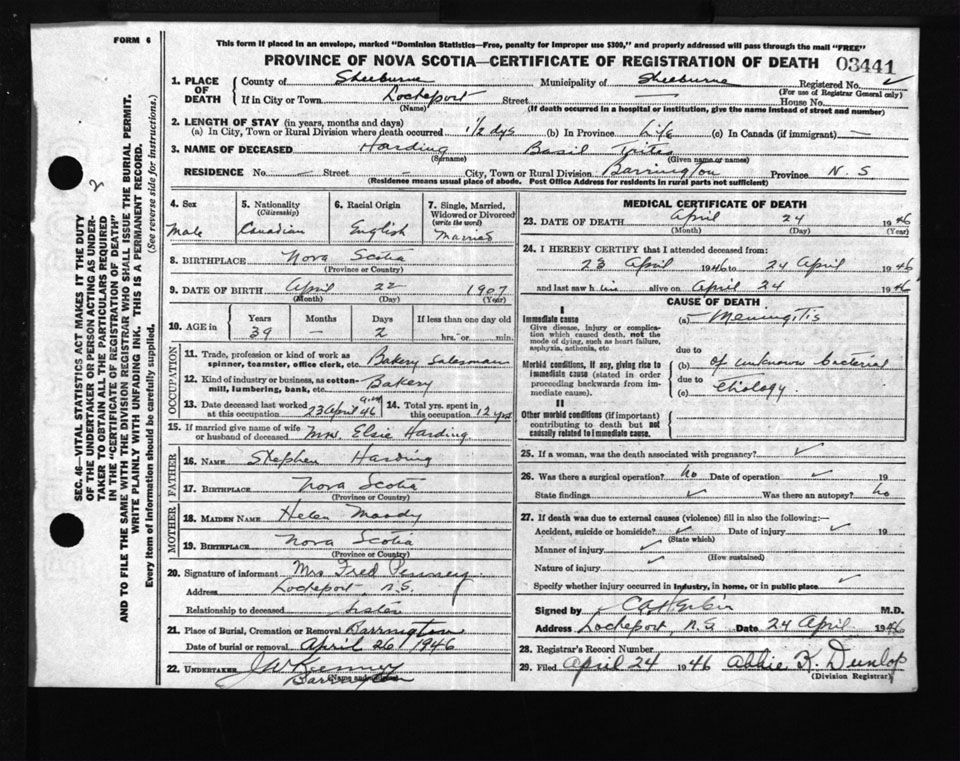 FORM 6
This form if placed in an envelope, marked "Dominion Statistics—Free, penalty for improper use $300," and properly addressed will pass through the mail "FREE"
PROVINCE OF NOVA SCOTIA—CERTIFICATE OF REGISTRATION OF DEATH 03441
1. PLACE OF DEATH County of Shelburne Municipality of Shelburne Registered No.
(For use of Registrar General only)
If in City or Town Lockeport Street — House No.
(Name) (If death occurred in a hospital or institution, give the name instead of street and number)
2. LENGTH OF STAY (in years, months and days)
(a) In City, Town or Rural Division where death occurred 1½ dys (b) In Province Life (c) In Canada (if immigrant) —
3. NAME OF DECEASED Harding Basil
(Surname) (Given name or names)
RESIDENCE No. — Street — City, Town or Rural Division Barrington Province N. S
(Residence means usual place of abode. Post Office Address for residents in rural parts not sufficient)
4. Sex 5. Nationality (Citizenship) 6. Racial Origin 7. Single, Married, Widowed or Divorced (write the word)
Male Canadian English Married
8. BIRTHPLACE Nova Scotia
(Province or Country)
9. DATE OF BIRTH April 22 1907
(Month) (Day) (Year)
10. AGE in Years Months Days If less than one day old
39 — 2 hrs. or min.
OCCUPATION
11. Trade, profession or kind of work as spinner, teamster, office clerk, etc. Bakery Salesman
12. Kind of industry or business, as cotton-mill, lumbering, bank, etc. Bakery
13. Date deceased last worked at this occupation 23 April 46 14. Total yrs. spent in this occupation 12 yrs
15. If married give name of wife or husband of deceased Mrs. Elsie Harding
FATHER
16. NAME Stephen Harding
17. BIRTHPLACE Nova Scotia
(Province or Country)
MOTHER
18. MAIDEN NAME Helen Moody
19. BIRTHPLACE Nova Scotia
(Province or Country)
20. Signature of informant Mrs Fred Penney
Address Lockeport, N.S.
Relationship to deceased Sister
21. Place of Burial, Cremation or Removal Barrington
Date of burial or removal April 26 1946
22. UNDERTAKER
Barrington
(Name and
MEDICAL CERTIFICATE OF DEATH
23. DATE OF DEATH April 24 1946
(Month) (Day) (Year)
24. I HEREBY CERTIFY that I attended deceased from:
23 April 1946 to 24 April 1946
and last saw him alive on April 24 1946
CAUSE OF DEATH
I
Immediate cause (a) Meningitis
Give disease, injury or complication which caused death, not the mode of dying, such as heart failure, asphyxia, asthenia, etc.
due to
Morbid conditions, if any, giving rise to immediate cause (stated in order proceeding backwards from immediate cause).
(b) of unknown bacterial
due to etiology.
(c)
II
Other morbid conditions (if important) contributing to death but not causally related to immediate cause.
25. If a woman, was the death associated with pregnancy?
26. Was there a surgical operation? No Date of operation 19
State findings Was there an autopsy? No
27. If death was due to external causes (violence) fill in also the following:—
Accident, suicide or homicide? Date of injury 19
(State which)
Manner of injury
(How sustained)
Nature of injury
Specify whether injury occurred in industry, in home, or in public place
Signed by M.D.
Address Lockeport, N.S. Date 24 April 1946
28. Registrar's Record Number
29. Filed April 24 1946 Abbie K. Dunlop
(Division Registrar)
SEC. 46—VITAL STATISTICS ACT MAKES IT THE DUTY
OF THE UNDERTAKER OR PERSON ACTING AS UNDER-
TAKER TO OBTAIN ALL THE PARTICULARS REQUIRED
IN THE "CERTIFICATE OF REGISTRATION OF DEATH"
AND TO FILE THE SAME WITH THE DIVISION REGISTRAR WHO SHALL ISSUE THE BURIAL PERMIT.
WRITE PLAINLY WITH UNFADING INK. THIS IS A PERMANENT RECORD.
Every item of information should be carefully supplied. (See reverse side for instructions.)
2